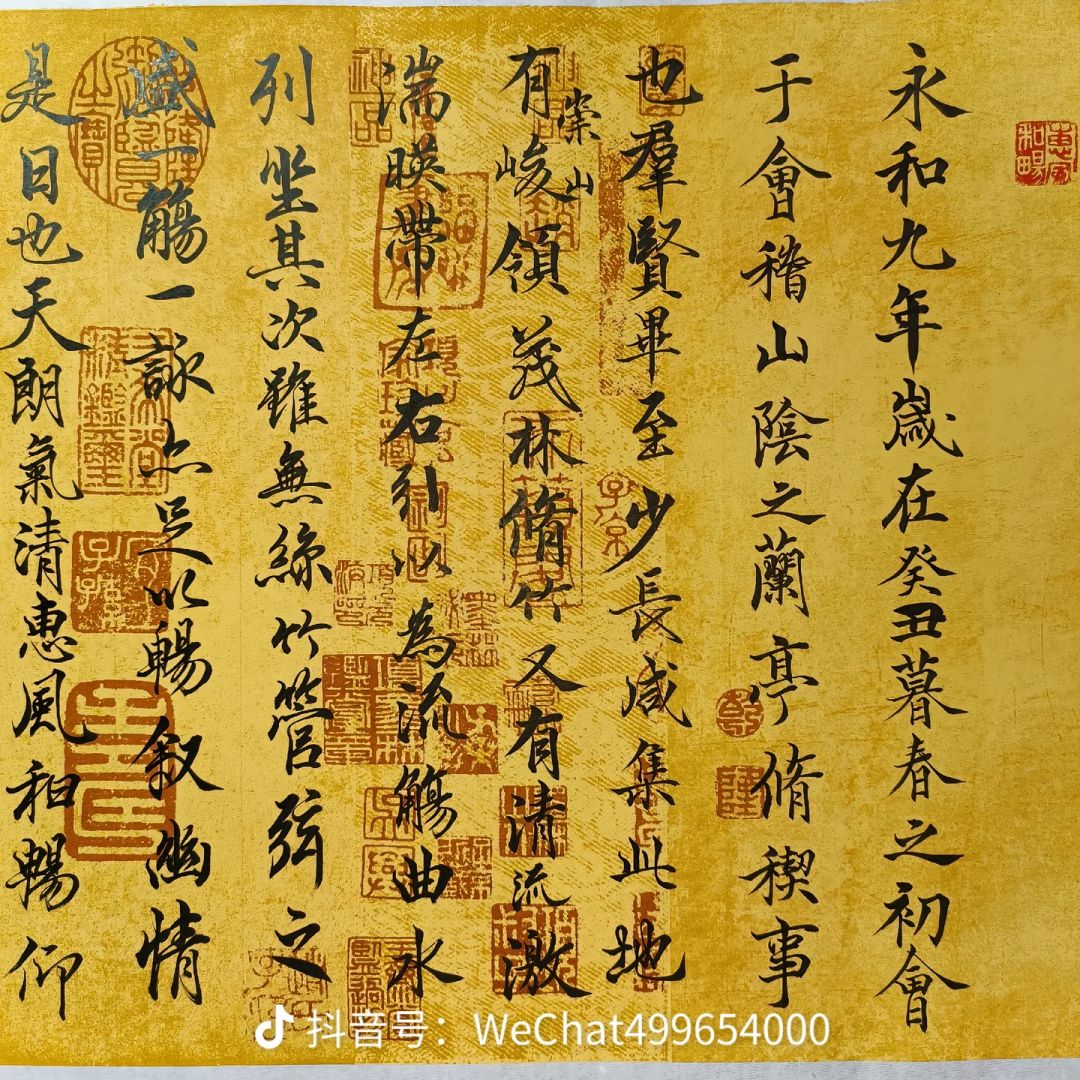 永和九年歲在癸丑暮春之初會
于會稽山陰之蘭亭脩稧事
也羣賢畢至少長咸集此地
有崇山峻領茂林脩竹又有清流激
湍暎帶左右引以為流觴曲水
列坐其次雖無絲竹管弦之
盛一觴一詠亦足以暢叙幽情
是日也天朗氣清惠風和暢仰
惠風和暢
抖音号：WeChat499654000